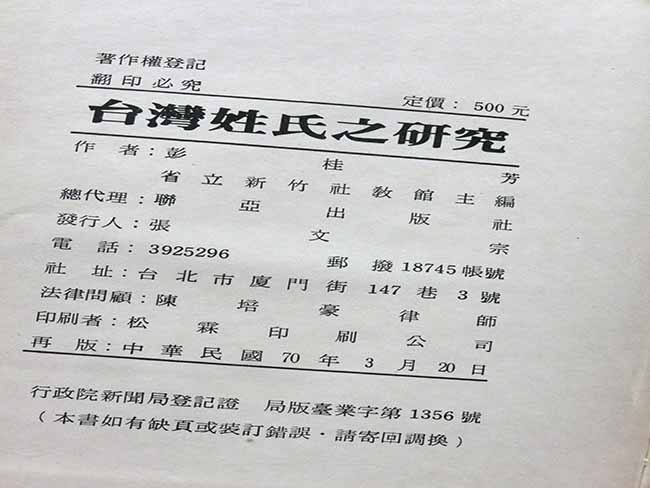 著作權登記
翻印必究
定價：500元
台灣姓氏之研究
作者：彭桂芳
省立新竹社教館主編
總代理：聯亞出版社
發行人：張文宗
電話：3925296 郵撥18745帳號
社址：台北市廈門街147巷3號
法律問顧：陳培豪律師
印刷者：松霖印刷公司
再版：中華民國70年3月20日
行政院新聞局登記證 局版臺業字第1356號
（本書如有缺頁或裝訂錯誤·請寄回調換）